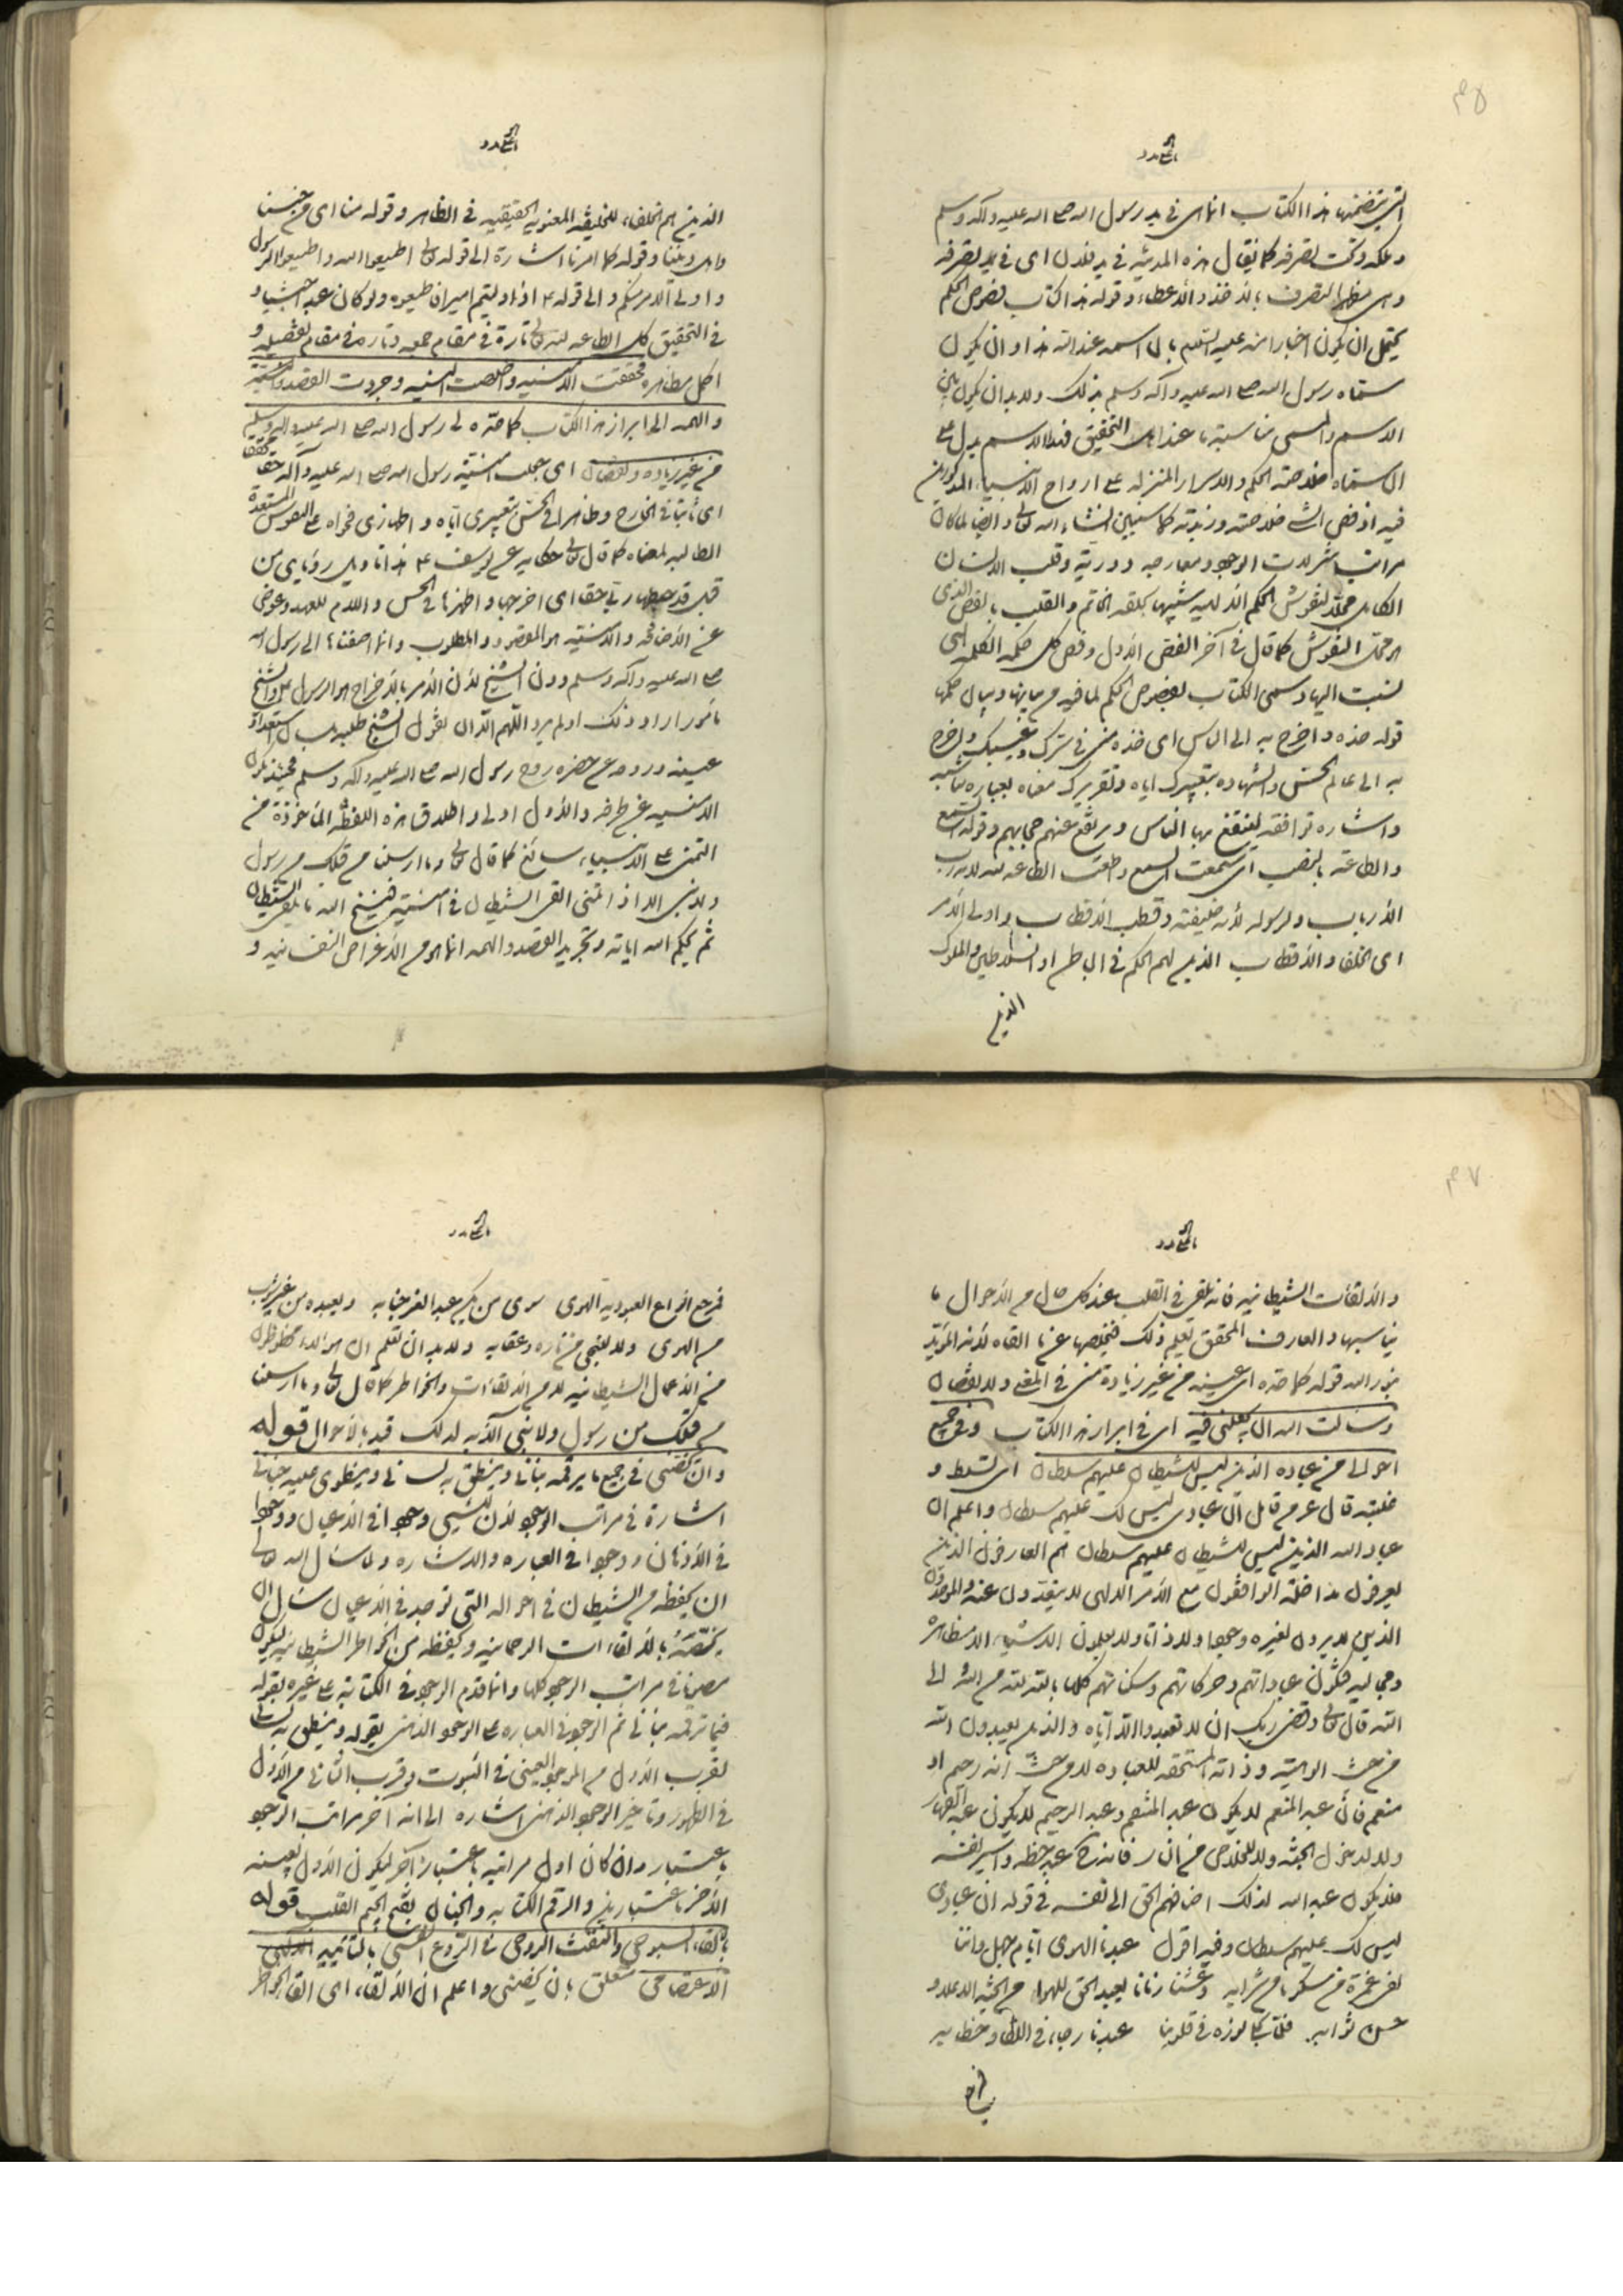 ۴۵
التی یتضمنها هذا الکتاب انما هی فی ید رسول الله صلی الله علیه وآله وسلم
وملکه وتحت تصرفه کما یقال هذه المدینة فی ید فلان ای فی ید تصرفه
التصرف بالاخذ والاعطاء وقوله هذا کتاب فصوص الحکم
یحتمل ان یکون اخبارا منه علیه السلم بان اسمه عند الله هذا وان یکون
سماه رسول الله صلی الله علیه وآله وسلم بذلک ولابد ان یکون بین
الاسم والمسمی مناسبة ما عند اهل التحقیق فهذا الاسم یدل علی
ان مسماه خلاصة الحکم والاسرار المنزلة علی ارواح الانبیاء المذکورین
فیه اذ فص الشئ خلاصته وزبدته کما سنبین انشاء الله تعالی وایضا لما کان
مراتب تنزلات الوجود ومعارجه دوریة وقلب الانسان
الکامل محلا لنقوش الحکم الالهیة شبهها بحلقة الخاتم والقلب بالفص الذی
هو محل النقوش کما قال فی آخر الفص الاول وفص کل حکمة الکلمة التی
نسبت الیها وسمی الکتاب بفصوص الحکم لما فیه من بیانها وبیان حکمها
قوله خذه واخرج به الی الناس ای خذه منی فی سرک وغیبک واخرج
به الی عالم الحس والشهادة بتعبیرک ایاه وتقریرک معناه بعبارة تناسبه
واشارة توافقه لینتفع بها الناس ویرتفع عنهم حجابهم وقوله السمع
والطاعة بالنصب ای سمعت السمع واطعت الطاعة لله لانه رب
الارباب ولرسوله لانه خلیفته وقطب الاقطاب واولی الامر
ای الخلفاء والاقطاب الذین لهم الحکم فی الباطن او السلاطین والملوک
الذین
الذین هم الخلفاء للخلیفة المعنویة الحقیقیة فی الظاهر وقوله منا ای من جنسنا
واهل دیننا وقوله کما امرنا اشارة الی قوله تعالی اطیعوا الله واطیعوا الرسول
واولی الامر منکم والی قوله ع اذا ولیتم امیرا فاطیعوه ولو کان عبدا حبشیا و
فی التحقیق کل الطاعة لله تعالی تارة فی مقام جمعه وتارة فی مقام تفصیله و
اکمل مظاهره فحققت الامنیة واخلصت النیة وجردت القصد والهمة
والهمة الی ابراز هذا الکتاب کما حده لی رسول الله صلی الله علیه وآله وسلم
من غیر زیادة ونقصان ای جعلت امنیة رسول الله صلی الله علیه وآله حقا
ای ثابتا فی الخارج وظاهرا فی الحس بتعبیری ایاه واظهاری فحواه علی النفوس المستعدة
الطالبة لمعناه کما قال تعالی حکایة عن یوسف ع هذا تاویل رؤیای من
قبل قد جعلها ربی حقا ای اخرجها واظهرها فی الحس واللام للعهد وعوض
عن الاضافة والامنیة هو المقصود والمطلوب وانما اضفناها الی رسول الله
صلی الله علیه وآله وسلم دون الشیخ لان الامر بالاخراج هو الرسول ع والشیخ
مامور اراد ذلک او لم یرد اللهم الا ان نقول الشیخ طلبه بلسان استعداد
عینه وروحه عن حضرة روح رسول الله صلی الله علیه وآله وسلم فحینئذ یکون
الامنیة من طرفه والاول اولی واطلاق هذه اللفظة الماخوذة من
التمنی علی الانبیاء سائغ کما قال تعالی وما ارسلنا من قبلک من رسول
ولا نبی الا اذا تمنی القی الشیطان فی امنیته فینسخ الله ما یلقی الشیطان
ثم یحکم الله آیاته وتجرید القصد والهمة انما هو من الاغراض النفسانیة و
۴۷
والالقاآت الشیطانیة فانه یلقی فی القلب عند کل حال من الاحوال ما
یناسبها والعارف المحقق یعلم ذلک فیخلصها عما القاه لانه المؤید
بنور الله قوله کما حده ای عینه من غیر زیادة منی فی المعنی ولا نقصان
وسالت الله ان یجعلنی فیه ای فی ابراز هذا الکتاب وفی جمیع
احوالی من عباده الذین لیس للشیطان علیهم سلطان ای تسلط و
غلبة قال عز من قائل ان عبادی لیس لک علیهم سلطان واعلم ان
عباد الله الذین لیس للشیطان علیهم سلطان هم العارفون الذین
یعرفون مداخله الواقفون مع الامر الالهی لا یتعدون عنه والموحدون
الذین لا یرون لغیره وجودا ولا ذاتا ولا یعلمون الاشیاء الا مظاهره
ومجالیه فیکون عباداتهم وحرکاتهم وسکناتهم کلها بالله لله من الله الی
الله قال تعالی وقضی ربک ان لا تعبدوا الا ایاه والذین یعبدون الله
من حیث الوهیته وذاته المستحقة للعبادة لا من حیث انه رحیم او
منعم فان عبد المنعم لا یکون عبد المنتقم وعبد الرحیم لا یکون عبد القهار
ولا لدخول الجنة ولا للخلاص من النار فانه ح عبد حظه واسیر نفسه
فلا یکون عبد الله لذلک اضافهم الحق الی نفسه فی قوله ان عبادی
لیس لک علیهم سلطان وفیه اقول عبدنا الهوی ایام جهل واننا
لفی غمرة من سکرنا من شرابه وعشنا زمانا نعبد الحق للهوی من الجنة الاعلا و
حسن ثوابه فلما تجلی نوره فی قلوبنا عبدنا رجاء فی اللقا وخطابه
فمرجع انواع العبودیة الهوی سوی من یکن عبدا لعز جنابه ویعبده من غیر شئ
من الهوی ولا للنجی من ناره وعقابه ولابد ان تعلم ان هؤلاء محفوظون
من الاعمال الشیطانیة لا من الالقاآت والخواطر کما قال تعالی وما ارسلنا
من قبلک من رسول ولا نبی الآیة لذلک قید بالاحوال قوله
وان یخصنی فی جمیع ما یرقمه بنانی وینطق به لسانی وینطوی علیه جنانی
اشارة فی مراتب الوجود لان للشئ وجودا فی الاعیان ووجودا
فی الاذهان ووجودا فی العبارة والاشارة ولما سئل الله تعالی
ان یحفظه من الشیطان فی احواله التی توجد فی الاعیان سئل ان
یخصه بالالقاءات الرحمانیة ویحفظه من الخواطر الشیطانیة لیکون
مصونا فی مراتب الوجود کلها وانما قدم الوجود فی الکتابة علی غیره بقوله
فیما ترقمه بنانی ثم الوجود فی العبارة علی الوجود الذهنی بقوله وینطق به لسانی
لقرب الاول من الوجود العینی فی الثبوت وقرب الثانی من الاول
فی الظهور وتاخیر الوجود الذهنی اشارة الی انه آخر مراتب الوجود
باعتبار وان کان اول مراتبه باعتبار آخر لیکون الاول بعینه
الآخر باعتبارین والرقم الکتابة والجنان بفتح الجیم القلب قوله
بالالقاء السبوحی والنفث الروحی فی الروع النفسی بالتایید
الاعتصامی متعلق بان یخصنی واعلم ان الالقاء ای القاء الخواطر